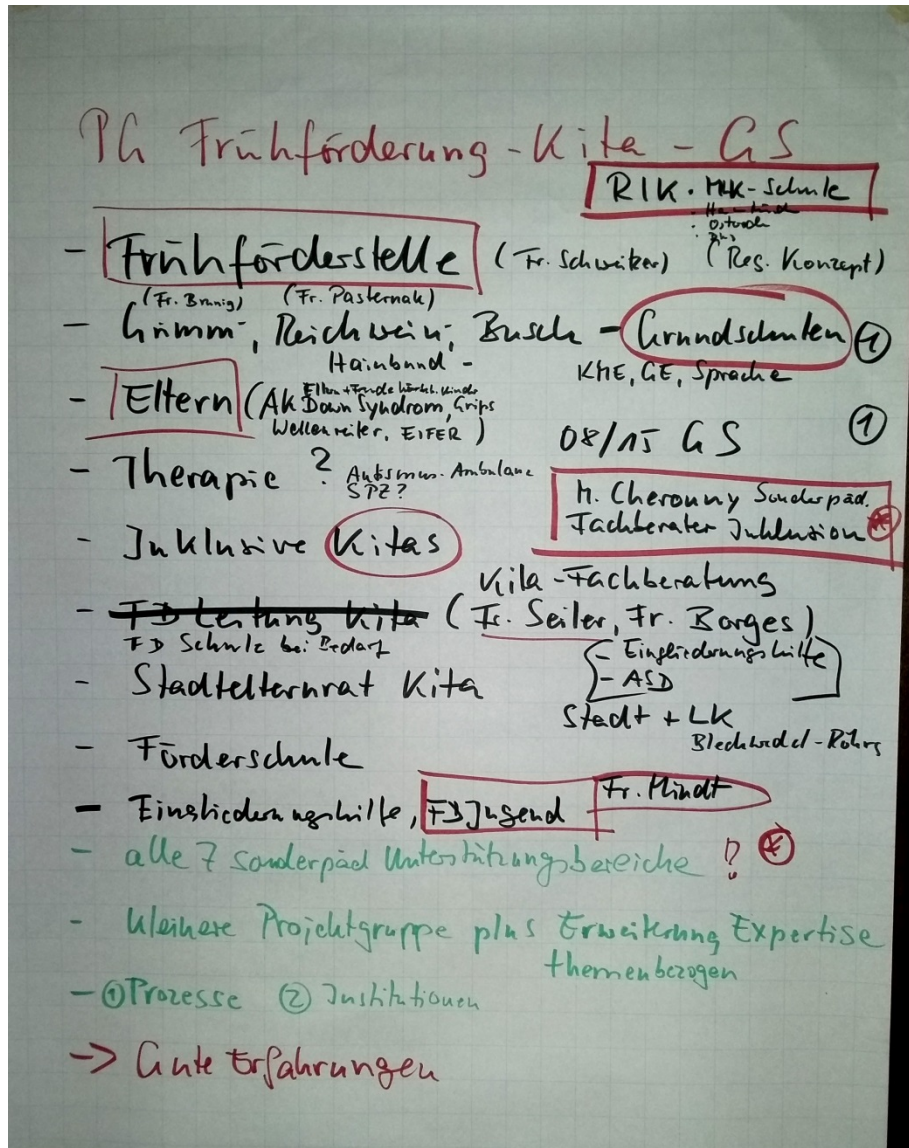 PG Frühförderung - Kita - GS
RIK · MLK-Schule
· Ostender
- Frühförderstelle (Fr. Schweiker) (Reg. Konzept)
(Fr. Brunig) (Fr. Pasternak)
- Grimm-, Reichwein-, Busch - Grundschulen ①
Hainbund - KME, GE, Sprache
- Eltern (AK Down Syndrom, Grips
Wellenreiter, EIFER)
08/15 GS ①
- Therapie ? Autismus-Ambulanz
SPZ?
M. Cheronny Sonderpäd.
Fachberater Inklusion
- Inklusive Kitas
Kita-Fachberatung
- FD Leitung Kita (Fr. Seiler, Fr. Borges)
FD Schule bei Bedarf
- Eingliederungshilfe
- ASD
- Stadtelternrat Kita
Stadt + LK
- Förderschule
- Eingliederungshilfe, FD Jugend Fr. Mindt
- alle 7 sonderpäd Unterstützungsbereiche ?
- kleinere Projektgruppe plus Erweiterung Expertise
themenbezogen
- ① Prozesse ② Institutionen
-> Gute Erfahrungen